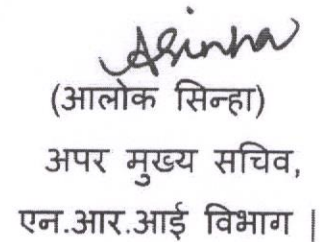 ASinha
(आलोक सिन्हा)
अपर मुख्य सचिव,
एन.आर.आई विभाग |